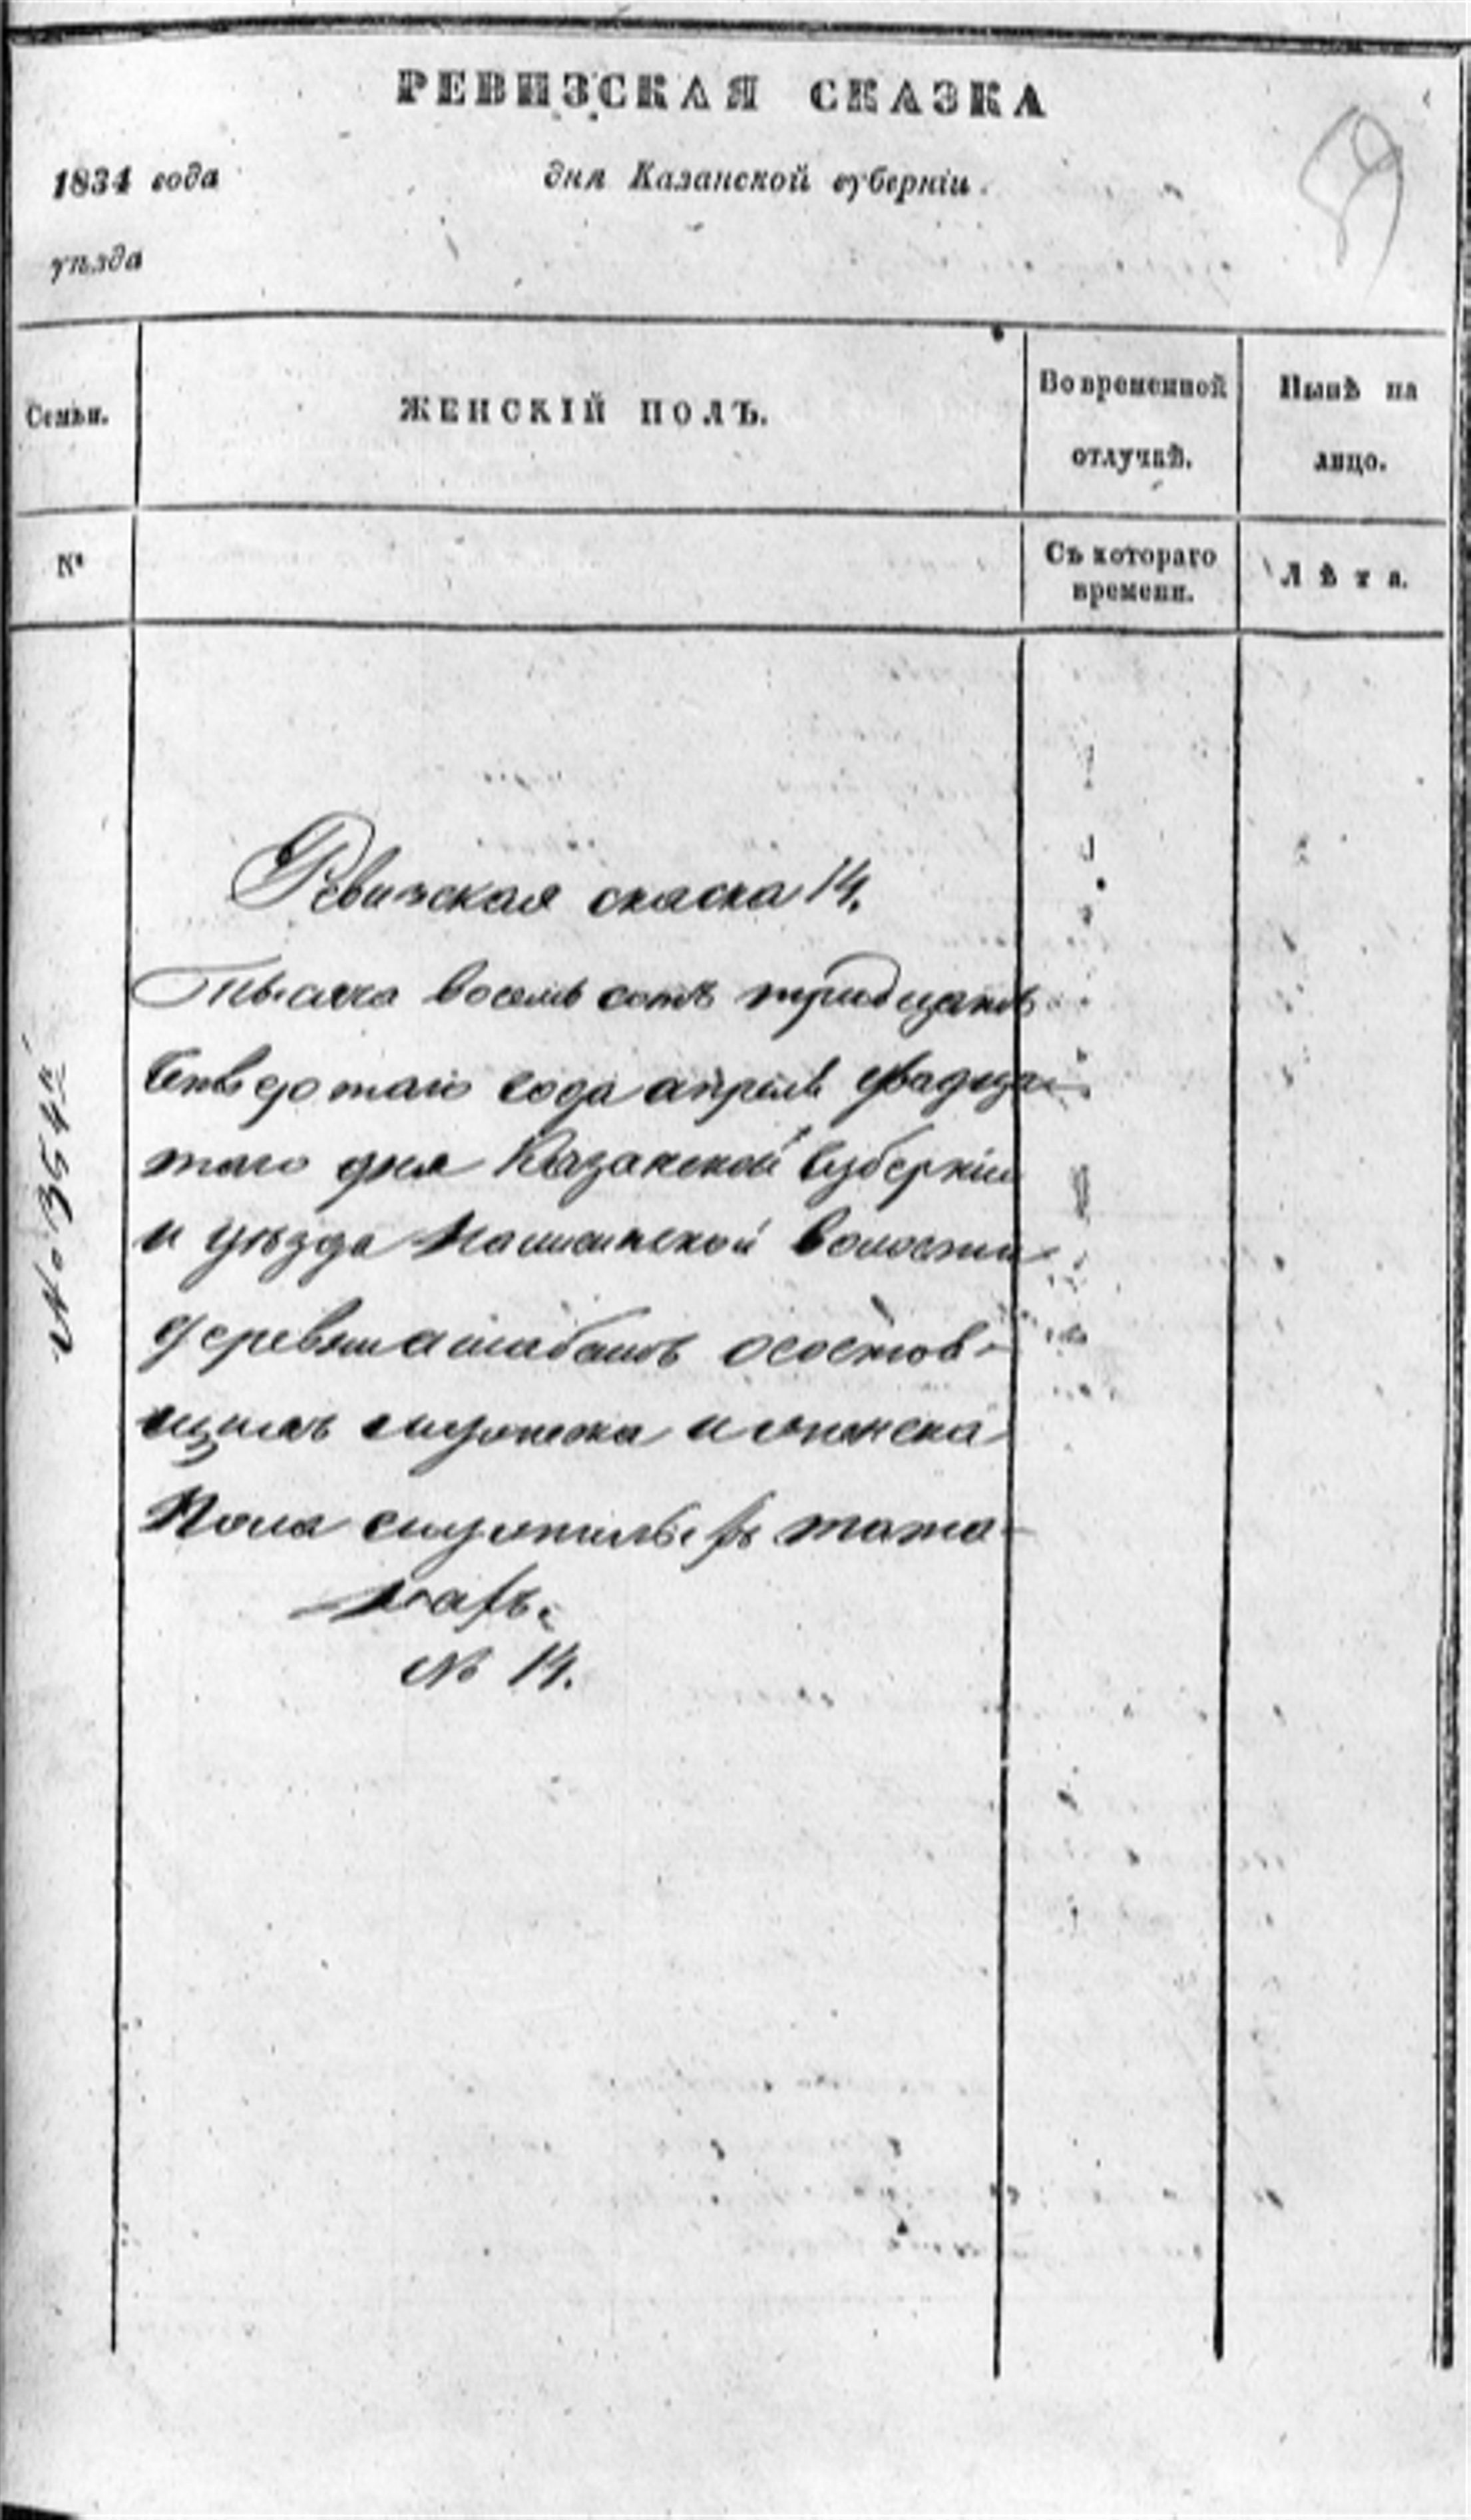 РЕВИЗСКАЯ СКАЗКА
59
1834 года дня Казанской губерніи.
уѣзда
Семьи.
ЖЕНСКІЙ ПОЛЪ.
Во временной отлучкѣ.
Нынѣ на лицо.
№
Съ котораго времени.
Лѣта.
Ревизская скаска 14.
Тысяча восемь сотъ тридцать
года апреля двадца
таго дня Казанской Губерніи
и уѣзда волости
деревни
пола
тата
рахъ.
№ 14.
№ 354